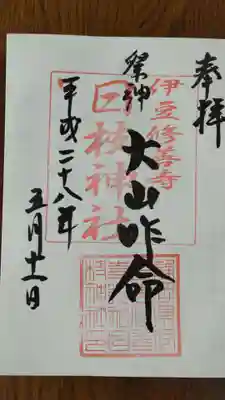 奉拝
伊豆修善寺
日枝神社
祭神 大山咋命
平成二十八年
五月十一日